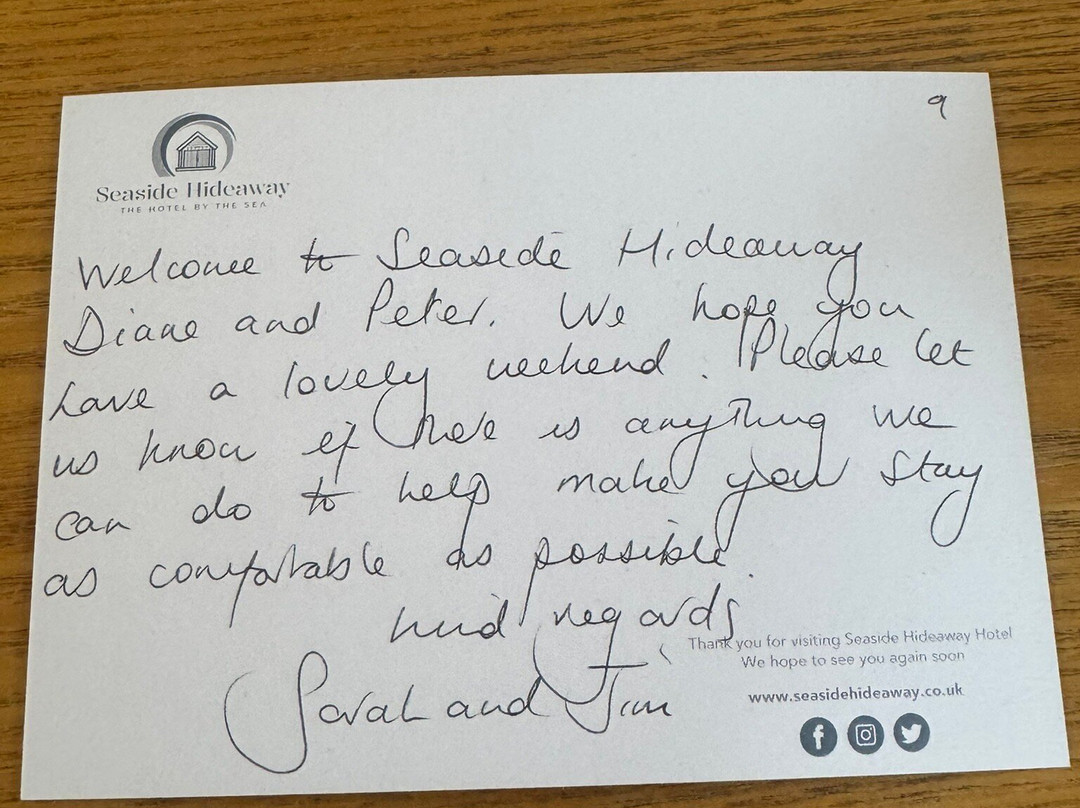 9
Seaside Hideaway
THE HOTEL BY THE SEA
Welcome to Seaside Hideaway
Diane and Peter. We hope you
have a lovely weekend. Please let
us know if there is anything we
can do to help make your stay
as comfortable as possible.
kind regards,
Sarah and Jim
Thank you for visiting Seaside Hideaway Hotel
We hope to see you again soon
www.seasidehideaway.co.uk